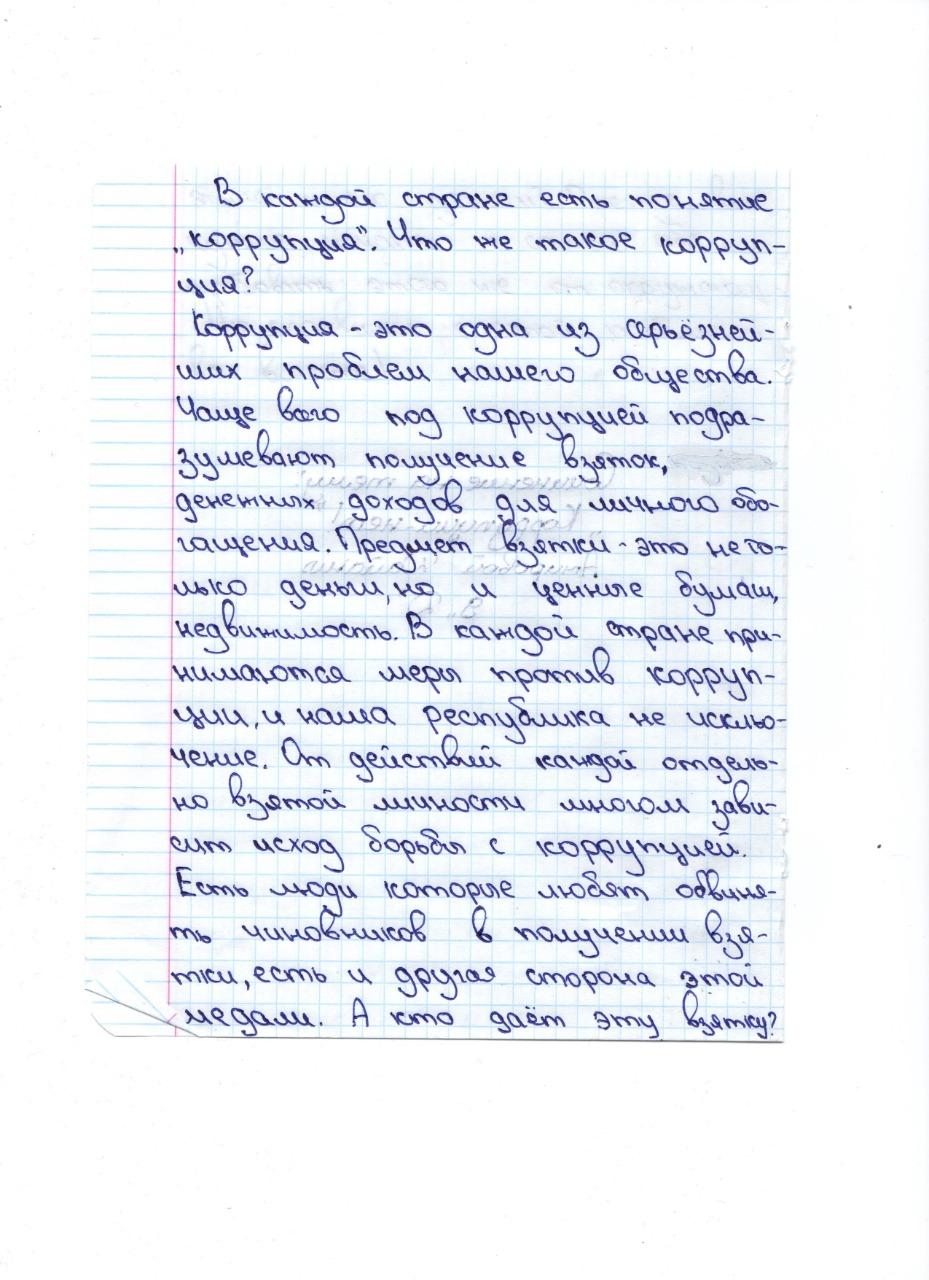 В каждой стране есть понятие
„коррупция". Что же такое корруп-
ция?
Коррупция - это одна из серьёзней-
ших проблем нашего общества.
Чаще всего под коррупцией подра-
зумевают получение взяток,
денежных доходов для личного обо-
гащения. Предмет взятки - это не то-
лько деньги, но и ценные бумаги,
недвижимость. В каждой стране при-
нимаются меры против корруп-
ции, и наша республика не исклю-
чение. От действий каждой отдель-
но взятой личности многом зави-
сит исход борьбы с коррупцией.
Есть люди которые любят обвиня-
ть чиновников в получении взя-
тки, есть и другая сторона этой
медали. А кто даёт эту взятку?